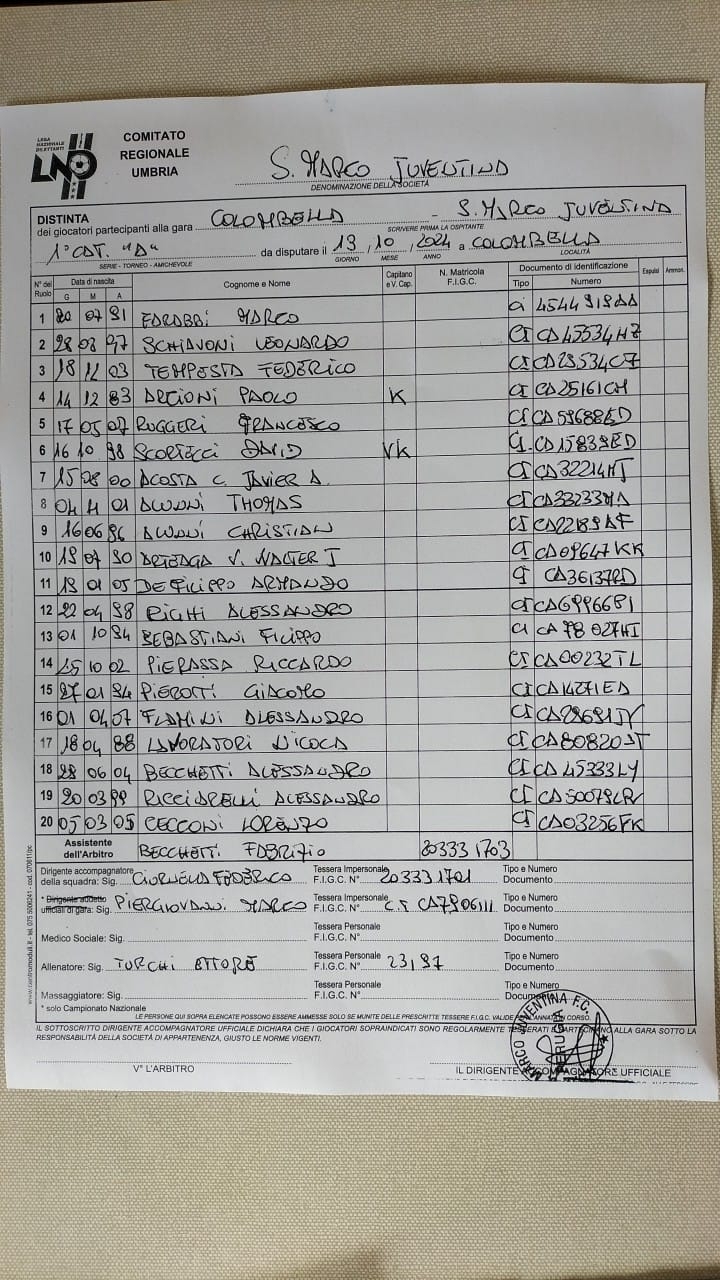 LEGA NAZIONALE DILETTANTI
LND
COMITATO
REGIONALE
UMBRIA
S. MARCO JUVENTINA
DENOMINAZIONE DELLA SOCIETÀ
DISTINTA
dei giocatori partecipanti alla gara COLOMBELLA - S. MARCO JUVENTINA
SCRIVERE PRIMA LA OSPITANTE
1° CAT. "A" da disputare il 13 / 10 / 2024 a COLOMBELLA
SERIE - TORNEO - AMICHEVOLE GIORNO MESE ANNO LOCALITÀ
N° del Ruolo Data di nascita G M A Cognome e Nome Capitano e V. Cap. N. Matricola F.I.G.C. Documento di identificazione Tipo Numero Espulsi Ammon.
1 20 07 91 FARABBI MARCO CI 4544919AA
2 28 08 97 SCHIAVONI LEONARDO CI CA45534HZ
3 18 12 03 TEMPESTA FEDERICO CI
4 14 12 83 ARCIONI PAOLO K CI CA25161CH
5 17 05 07 RUGGERI FRANCESCO CI CA59688ED
6 16 10 98 SCORTECCI DAVID VK CI CA15839ED
7 15 08 00 ACOSTA C. JAVIER A. CI CA32214MJ
8 04 11 01 ALUNNI THOMAS CI CA33233MA
9 16 06 96 CHRISTIAN CI CA22189AF
10 19 07 90 ARTEAGA V. WALTER J CI CA09647KK
11 13 01 05 DE FILIPPO ARMANDO CI CA36137RD
12 22 04 98 RIGHI ALESSANDRO CI
13 01 10 94 SEBASTIANI FILIPPO CI CA78027HI
14 25 10 02 PIERASSA RICCARDO CI CA00232TL
15 27 01 94 PIEROTTI GIACOMO CI CA14271EA
16 01 04 07 FLAMINI ALESSANDRO CI
17 18 04 88 LAVORATORI NICOLA CI CA80820AT
18 28 06 04 BECCHETTI ALESSANDRO CI CA45333LY
19 20 03 99 RICCIARELLI ALESSANDRO CI
20 05 03 05 CECCONI LORENZO CI CA03256FK
Assistente dell'Arbitro BECCHETTI FABRIZIO 203331703
Dirigente accompagnatore della squadra: Sig. FEDERICO Tessera Impersonale F.I.G.C. N° 203331701 Tipo e Numero Documento
* Dirigente addetto ufficiali di gara: Sig. PIERGIOVANNI MARCO Tessera Impersonale F.I.G.C. N° C.I CA7906111 Tipo e Numero Documento
Medico Sociale: Sig. Tessera Personale F.I.G.C. N° Tipo e Numero Documento
Allenatore: Sig. TURCHI ETTORE Tessera Personale F.I.G.C. N° 23,97 Tipo e Numero Documento
Massaggiatore: Sig. Tessera Personale F.I.G.C. N° Tipo e Numero Documento
* solo Campionato Nazionale
LE PERSONE QUI SOPRA ELENCATE POSSONO ESSERE AMMESSE SOLO SE MUNITE DELLE PRESCRITTE TESSERE F.I.G.C. VALIDE PER L'ANNATA IN CORSO.
IL SOTTOSCRITTO DIRIGENTE ACCOMPAGNATORE UFFICIALE DICHIARA CHE I GIOCATORI SOPRAINDICATI SONO REGOLARMENTE TESSERATI E PARTECIPANO ALLA GARA SOTTO LA
RESPONSABILITÀ DELLA SOCIETÀ DI APPARTENENZA, GIUSTO LE NORME VIGENTI.
V° L'ARBITRO IL DIRIGENTE ACCOMPAGNATORE UFFICIALE
MARCO JUVENTINA F.C.